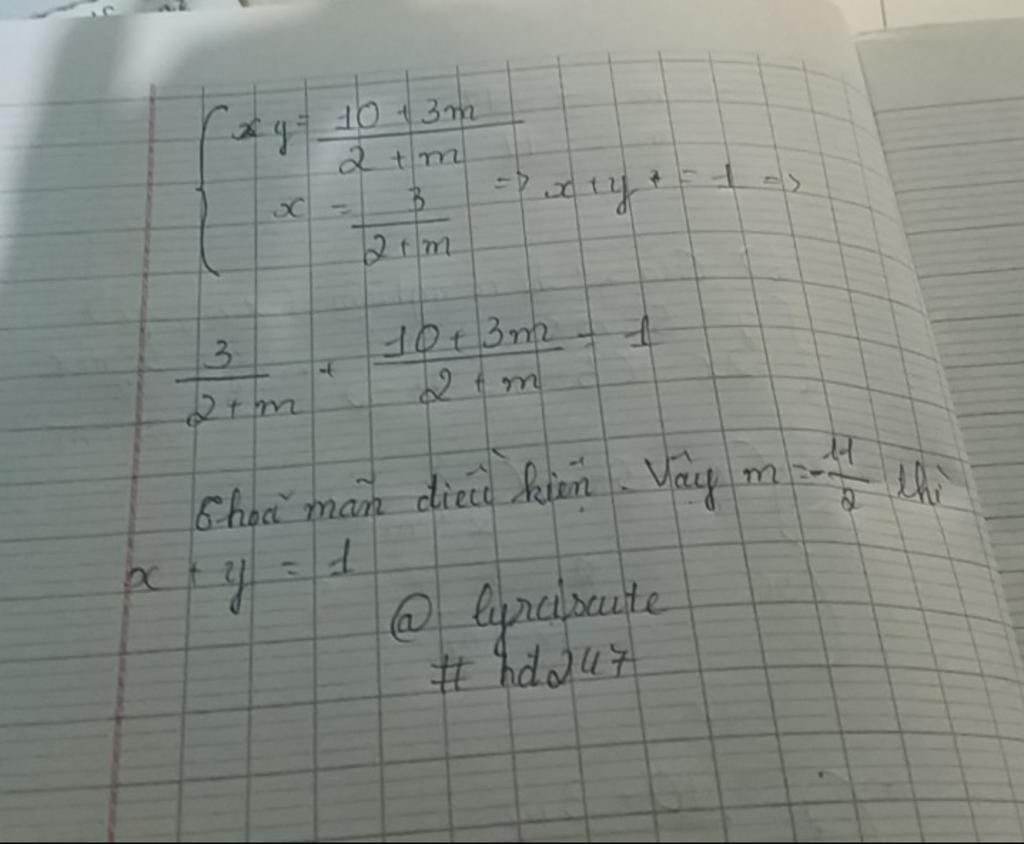 x y = 10 + 3m / 2 + m
x = 3 / 2 + m => x + y + = 1 =>
3 / 2 + m + 10 + 3m / 2 + m = 1
thoả mãn điều kiện. Vậy m = -11/2 thì
x + y = 1
@
# hd247